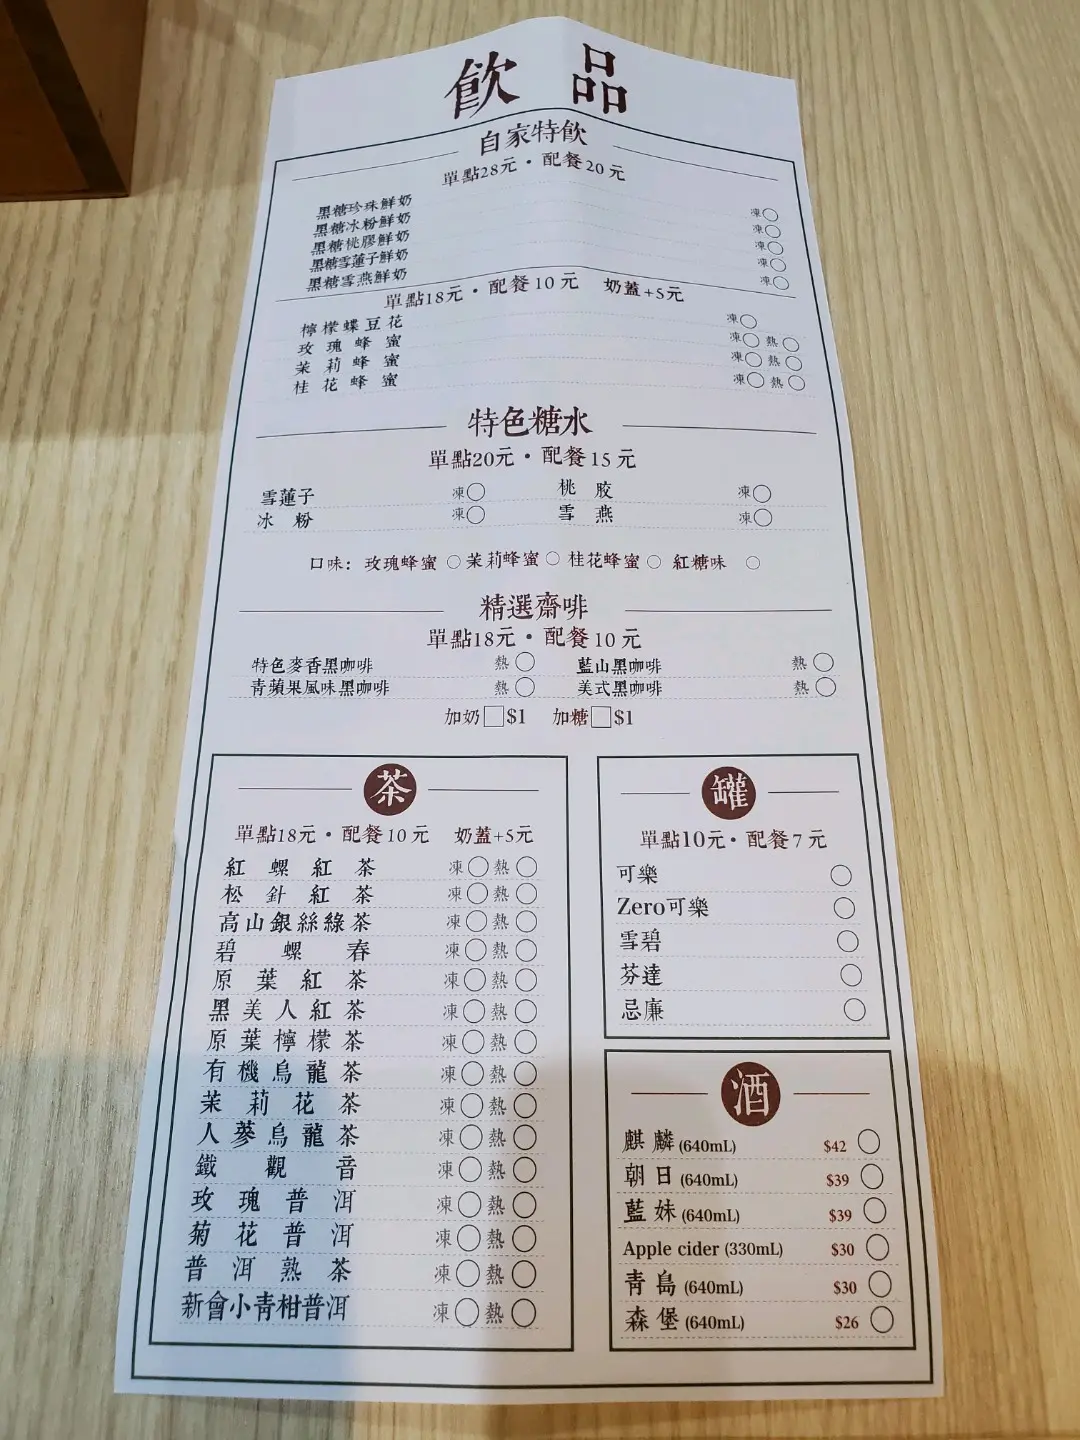 飲品
自家特飲
單點28元・配餐20元
黑糖珍珠鮮奶 凍○
黑糖冰粉鮮奶 凍○
黑糖桃膠鮮奶 凍○
黑糖雪蓮子鮮奶 凍○
黑糖雪燕鮮奶 凍○
單點18元・配餐10元 奶蓋+5元
檸檬蝶豆花 凍○
玫瑰蜂蜜 凍○ 熱○
茉莉蜂蜜 凍○ 熱○
桂花蜂蜜 凍○ 熱○
特色糖水
單點20元・配餐15元
雪蓮子 凍○ 桃胶 凍○
冰粉 凍○ 雪燕 凍○
口味：玫瑰蜂蜜○ 茉莉蜂蜜○ 桂花蜂蜜○ 紅糖味○
精選齋啡
單點18元・配餐10元
特色麥香黑咖啡 熱○ 藍山黑咖啡 熱○
青蘋果風味黑咖啡 熱○ 美式黑咖啡 熱○
加奶□$1 加糖□$1
茶
單點18元・配餐10元 奶蓋+5元
紅螺紅茶 凍○熱○
松針紅茶 凍○熱○
高山銀絲綠茶 凍○熱○
碧螺春 凍○熱○
原葉紅茶 凍○熱○
黑美人紅茶 凍○熱○
原葉檸檬茶 凍○熱○
有機烏龍茶 凍○熱○
茉莉花茶 凍○熱○
人蔘烏龍茶 凍○熱○
鐵觀音 凍○熱○
玫瑰普洱 凍○熱○
菊花普洱 凍○熱○
普洱熟茶 凍○熱○
新會小青柑普洱 凍○熱○
罐
單點10元・配餐7元
可樂 ○
Zero可樂 ○
雪碧 ○
芬達 ○
忌廉 ○
酒
麒麟(640mL) $42 ○
朝日(640mL) $39 ○
藍妹(640mL) $39 ○
Apple cider (330mL) $30 ○
青島(640mL) $30 ○
森堡(640mL) $26 ○